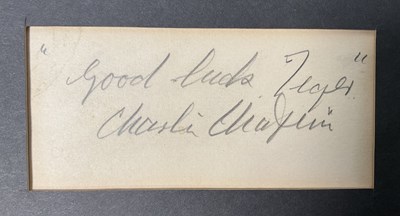 "Good luck Tiger"
Charlie Chaplin